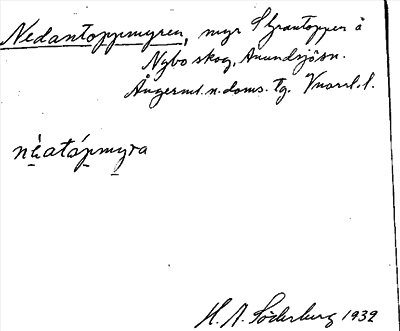 Nedantoppmyren, myr S Grantoppen å
Nybo skog, Anundsjösn.
Ångerml. n. doms. tg. Vnorrl. l.
nèatápmyra
H. A. Söderberg 1932